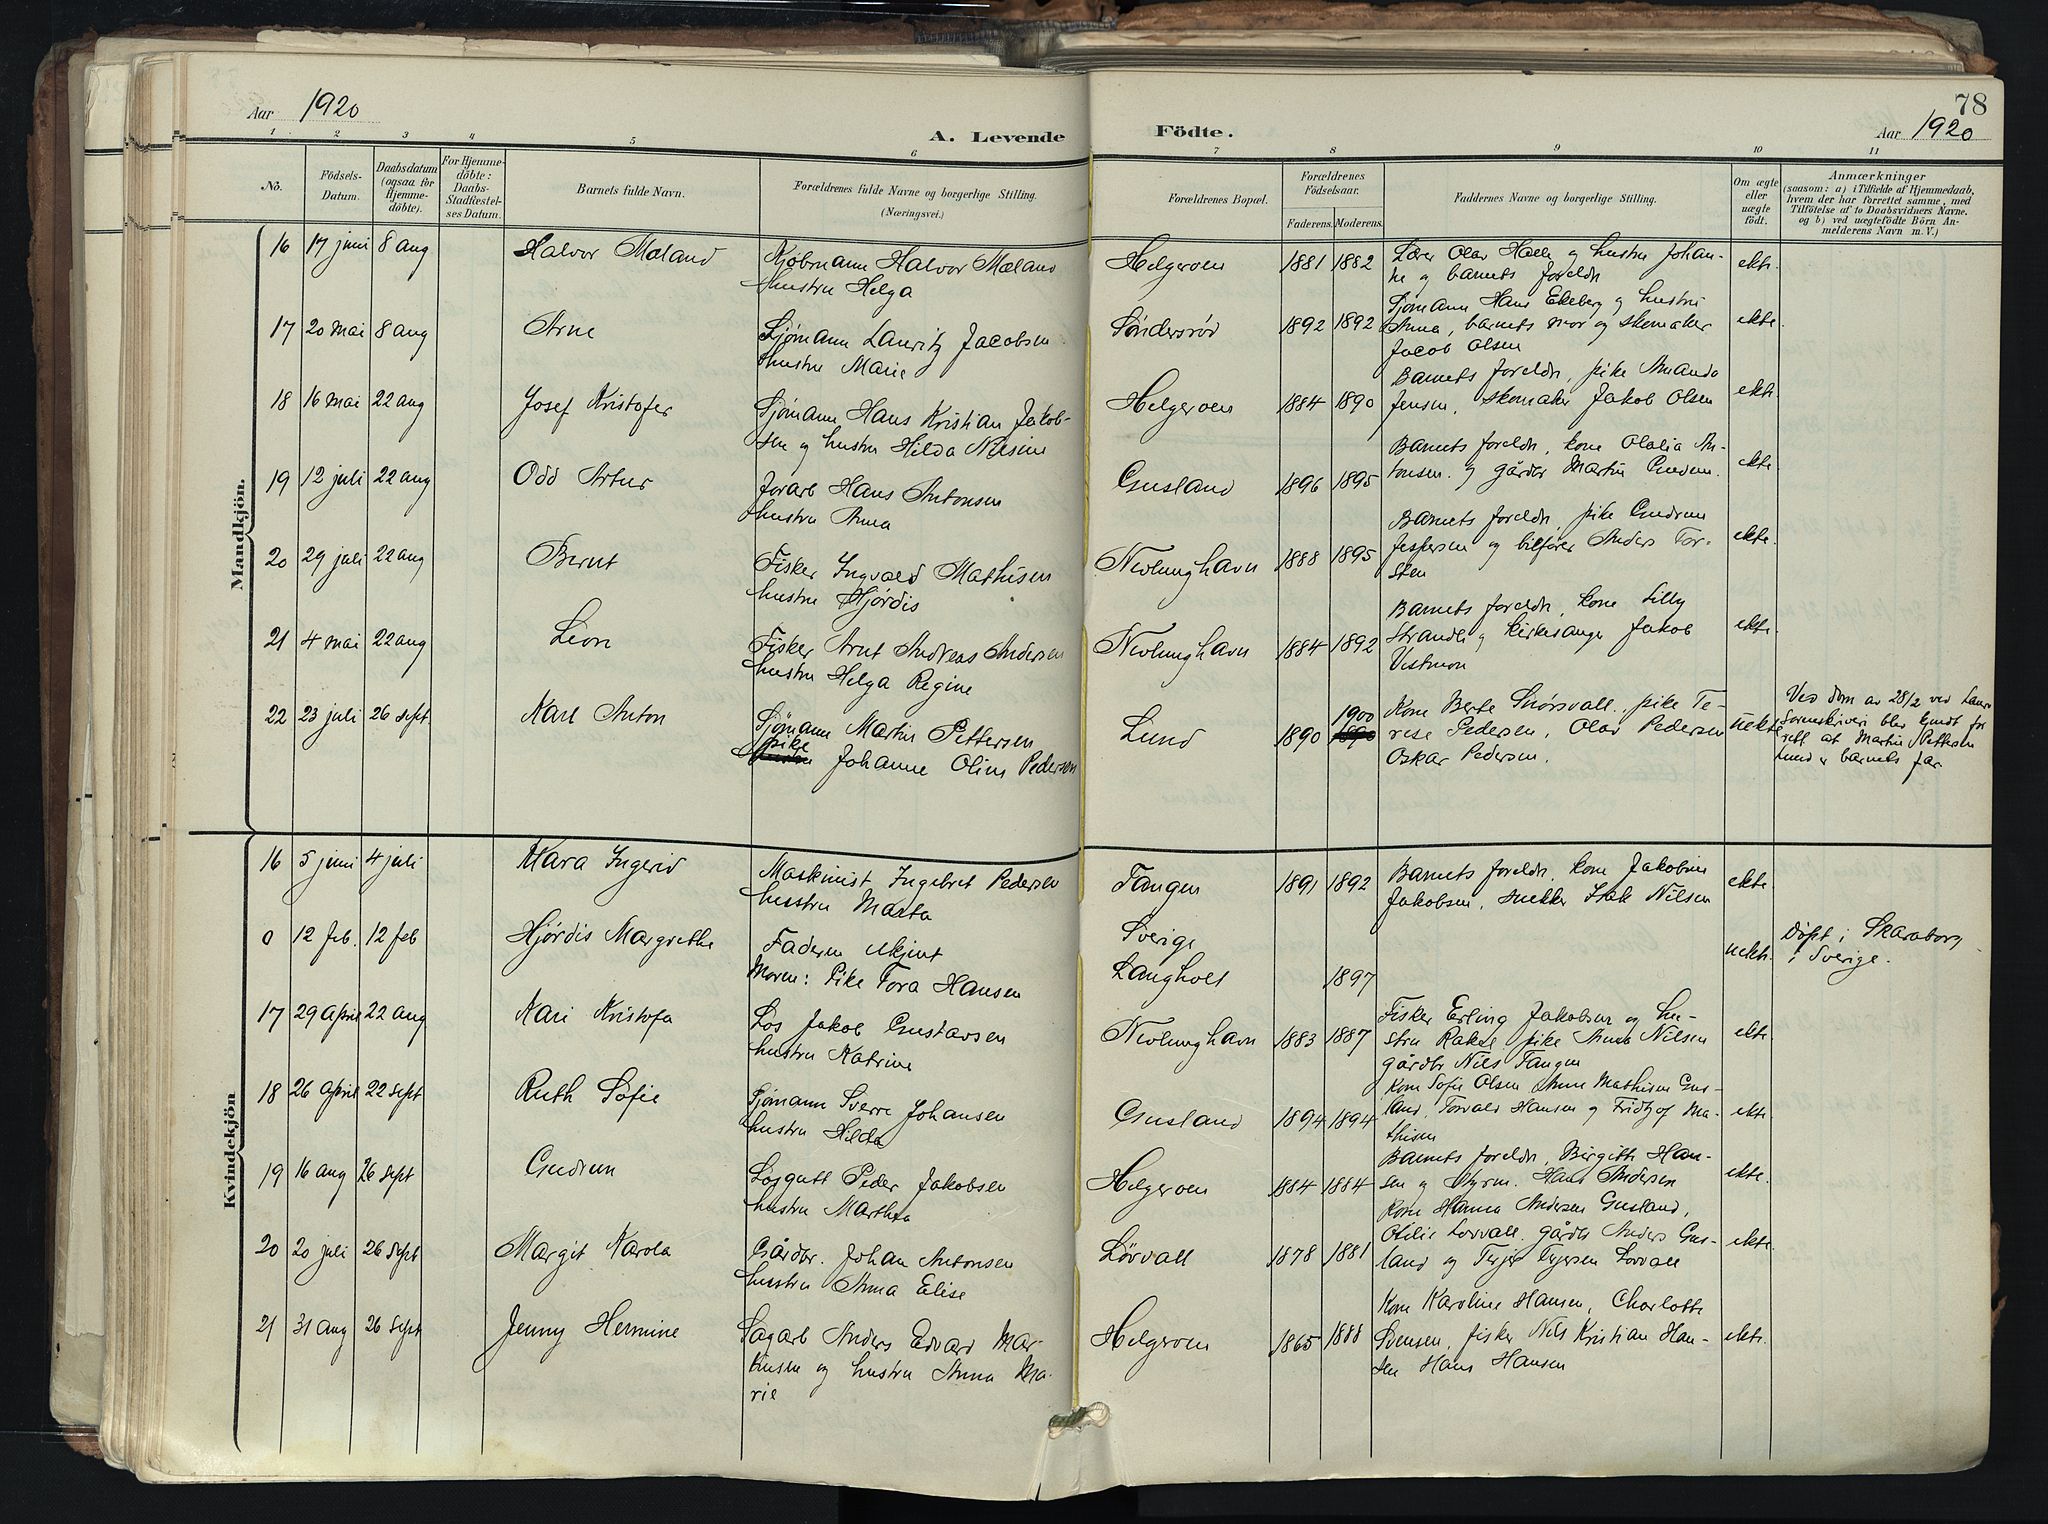 78
Aar 1920
A. Levende
Födte.
Aar 1920
1 2 3 4 5 6 7 8 9 10 11
No.
Födsels-Datum.
Daabsdatum (ogsaa for Hjemme-döbte).
For Hjemme-döbte: Daabs-Stadfæstel-ses Datum.
Barnets fulde Navn.
Forældrenes fulde Navne og borgerlige Stilling.
(Næringsvei.)
Forældrenes Bopæl.
Forældrenes Födselsaar.
Faderens. Moderens.
Faddernes Navne og borgerlige Stilling.
Om ægte eller uægte födt.
Anmærkninger
(saasom: a) i Tilfælde af Hjemmedaab,
hvem der har forrettet samme, med
Tilföielse af to Daabsvidners Navne.
og b) ved uægtefödte Börn An-
melderens Navn m. V.)
Mandkjön.
16 17 juni 8 aug Halvor Mæland Kjøbmann Halvor Mæland
hustru Helga
Helgeroen 1881 1882 Lærer Olav Halle og hustru Johan-
ne og barnets foreldr ekte.
17 20 mai 8 aug Arne Sjømann Lauritz Jacobsen
hustru Marie
Søndersrød 1892 1892 Sjømann Hans Ekeberg og hustru
Anna, barnets mor og skomaker
Jacob Olsen ekte.
18 16 mai 22 aug Josef Kristofer Sjømann Hans Kristian Jakob-
sen og hustru Hilda Nilsine
Helgeroen 1884 1890 Barnets foreldr, pike Amanda
Jensen, skomaker Jakob Olsen ekte.
19 12 juli 22 aug Odd Artur Jorarb Hans Antonsen
hustru Anna
Gusland 1896 1895 Barnets foreldr, kone Olalia An-
tonsen og gårdbr Martin ekte.
20 29 juli 22 aug Bernt Fisker Ingvald Mathisen
hustru Hjørdis
Nevlunghavn 1888 1895 Barnets foreldr, pike Gudrun
Jespersen og bilfører Anders Tor-
sten ekte.
21 4 mai 22 aug Leon Fisker Arnt Andreas Andersen
hustru Helga Regine
Nevlunghavn 1884 1892 Barnets foreldr, kone Lilly
Strande og kirkesanger Jakob
Vestmon ekte.
22 23 juli 26 sept Karl Anton Sjømann Martin Pettersen
pike
hustru Johanne Oline Pedersen
Lund 1890 1900 1890 Kone Berte Snørsvall, pike Te-
rese Pedersen, Olav Pedersen
Oskar Pedersen. uekte
Ved dom av 28/2 ved
sorenskriveri blev kjendt for
rett at Martin Pettersen
Lund er barnets far
Kvindekjön
16 5 juni 4 juli Klara Ingerid Maskinist Ingebret Pedersen
hustru Marta
Tangen 1891 1892 Barnets foreldr, kone Jakobine
Jakobsen, snekker Isak Nilsen ekte.
0 12 feb. 12 feb Hjørdis Margrethe Faderen ukjent
Moren: Pike Tora Hansen
Sverige
Langholt 1897 uekte. Døpt i Skaraborg
i Sverige.
17 29 april 22 aug Kari Kristofa Los Jakob Gustavsen
hustru Katrine
Nevlunghavn 1883 1887 Fisker Erling Jakobsen og hu-
stru Rakel, pike Anna Nilsen
gårdbr Nils Tangen ekte.
18 26 april 22 sept Ruth Sofie Sjømann Sverre Johansen
hustru Hilda
Gusland 1894 1894 Kone Sofie Olsen Anne Mathisen Gus-
land, Torvald Hansen og Fridtjof Ma-
thisen ekte.
19 16 aug 26 sept Gudrun Losgutt Peder Jakobsen
hustru Marthea
Helgeroen 1884 1884 Barnets foreldr, Birgitte Han-
sen og styrm. Hans Andersen ekte.
20 20 juli 26 sept Margit Karola Gårdbr. Johan Antonsen
hustru Anna Elise
Lørvall 1878 1881 Kone Hanna Andersen Gusland,
Otilie Lorvall, gårdbr Anders Gus-
land og Terjer Terjersen Lorvall ekte.
21 31 aug 26 sept Jenny Hermine Sagarb Anders Edvard Mar-
kusen og hustru Anna Ma-
rie
Helgeroen 1865 1888 Kone Karoline Hansen, Charlotte
Svensen, fisker Nils Kristian Han-
sen Hans Hansen ekte.